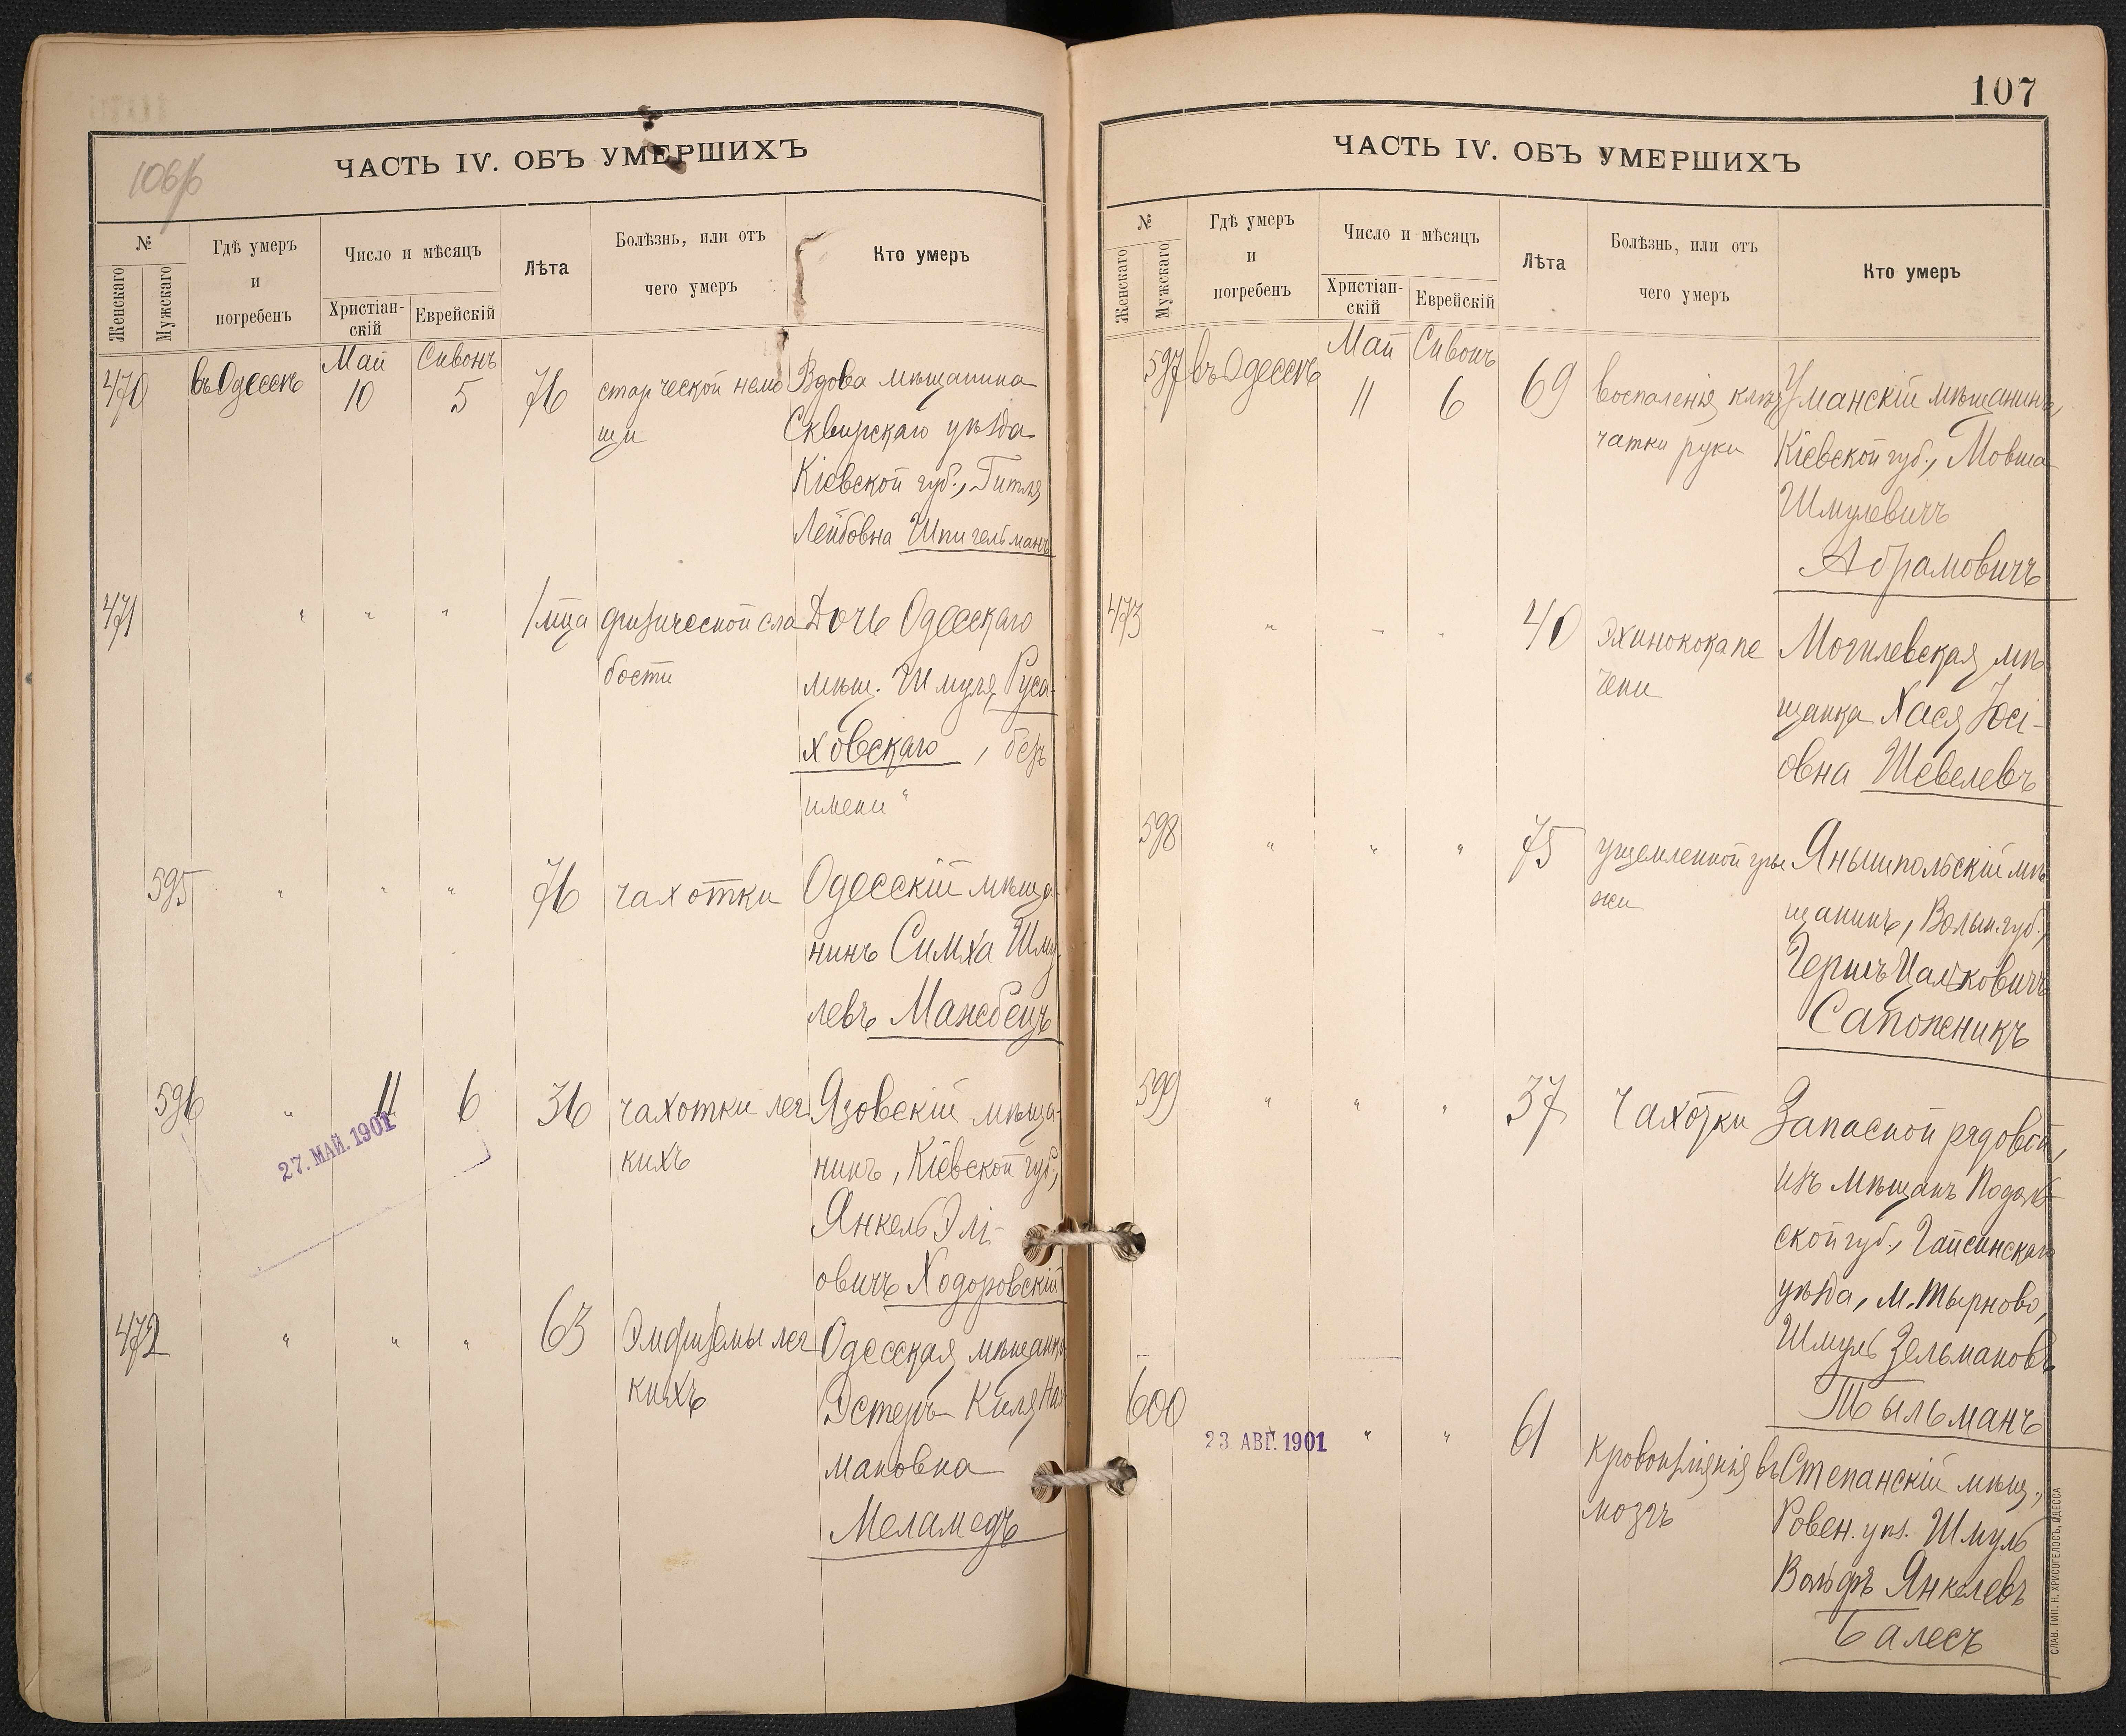 106/б
ЧАСТЬ IV. ОБЪ УМЕРШИХЪ
№
Женскаго
Мужскаго
Гдѣ умеръ
и
погребенъ
Число и мѣсяцъ
Христіан-
скій
Еврейскій
Лѣта
Болѣзнь, или отъ
чего умеръ
Кто умеръ
470 въ Одессѣ Май 10 Сивонъ 5 76 старческой немо Вдова мѣщанина
щи Сквирскаго уѣзда
Кіевской губ., Гитля
Лейбовна Шпигельманъ
471 " " " 1 мца физической сла Дочь Одесскаго
бости мѣщ. Шмуля Руса-
ховскаго, "безъ
имени"
595 " " " 76 чахотки Одесскій мѣща-
нинъ Симха Шму-
левъ
596 " 11 6 36 чахотки лег Язовскій мѣща-
кихъ нинъ, Кіевской губ.,
27. МАЙ. 1901
Янкель Элі-
овичъ Ходоровскій
472 " " " 63 Эмфиземы лег Одесская мѣщанка
кихъ Эстеръ Киля Нах
мановна
Меламедъ
107
ЧАСТЬ IV. ОБЪ УМЕРШИХЪ
№
Женскаго
Мужскаго
Гдѣ умеръ
и
погребенъ
Число и мѣсяцъ
Христіан-
скій
Еврейскій
Лѣта
Болѣзнь, или отъ
чего умеръ
Кто умеръ
597 въ Одессѣ Май 11 Сивонъ 6 69 воспаленія клѣт Уманскій мѣщанинъ,
чатки руки Кіевской губ., Мовша
Шмулевичъ
Абрамовичъ
473 " " " 40 эхинокока пе Могилевская мѣ
чени щанка Хася Іосі-
овна Шевелевъ
598 " " " 75 ущемленной гры Янышпольскій мѣ
жи щанинъ, Волын. губ.,
Гершъ Ицковичъ
Сапожникъ
599 " " " 37 Чахотки Запасной рядовой,
изъ мѣщанъ Подоль
ской губ., Гайсинскаго
уѣзда, м. Тырново,
Шмуль Зельмановъ
Тыльманъ
600 23. АВГ. 1901 " " 61 кровоизліянія въ Степанскій мѣщ.,
мозгъ Ровен. уѣз. Шмуль
Вольфъ Янкелевъ
Балесъ
СЛАВ. ТИП. Н. ХРИСОГЕЛОСЪ, ОДЕССА